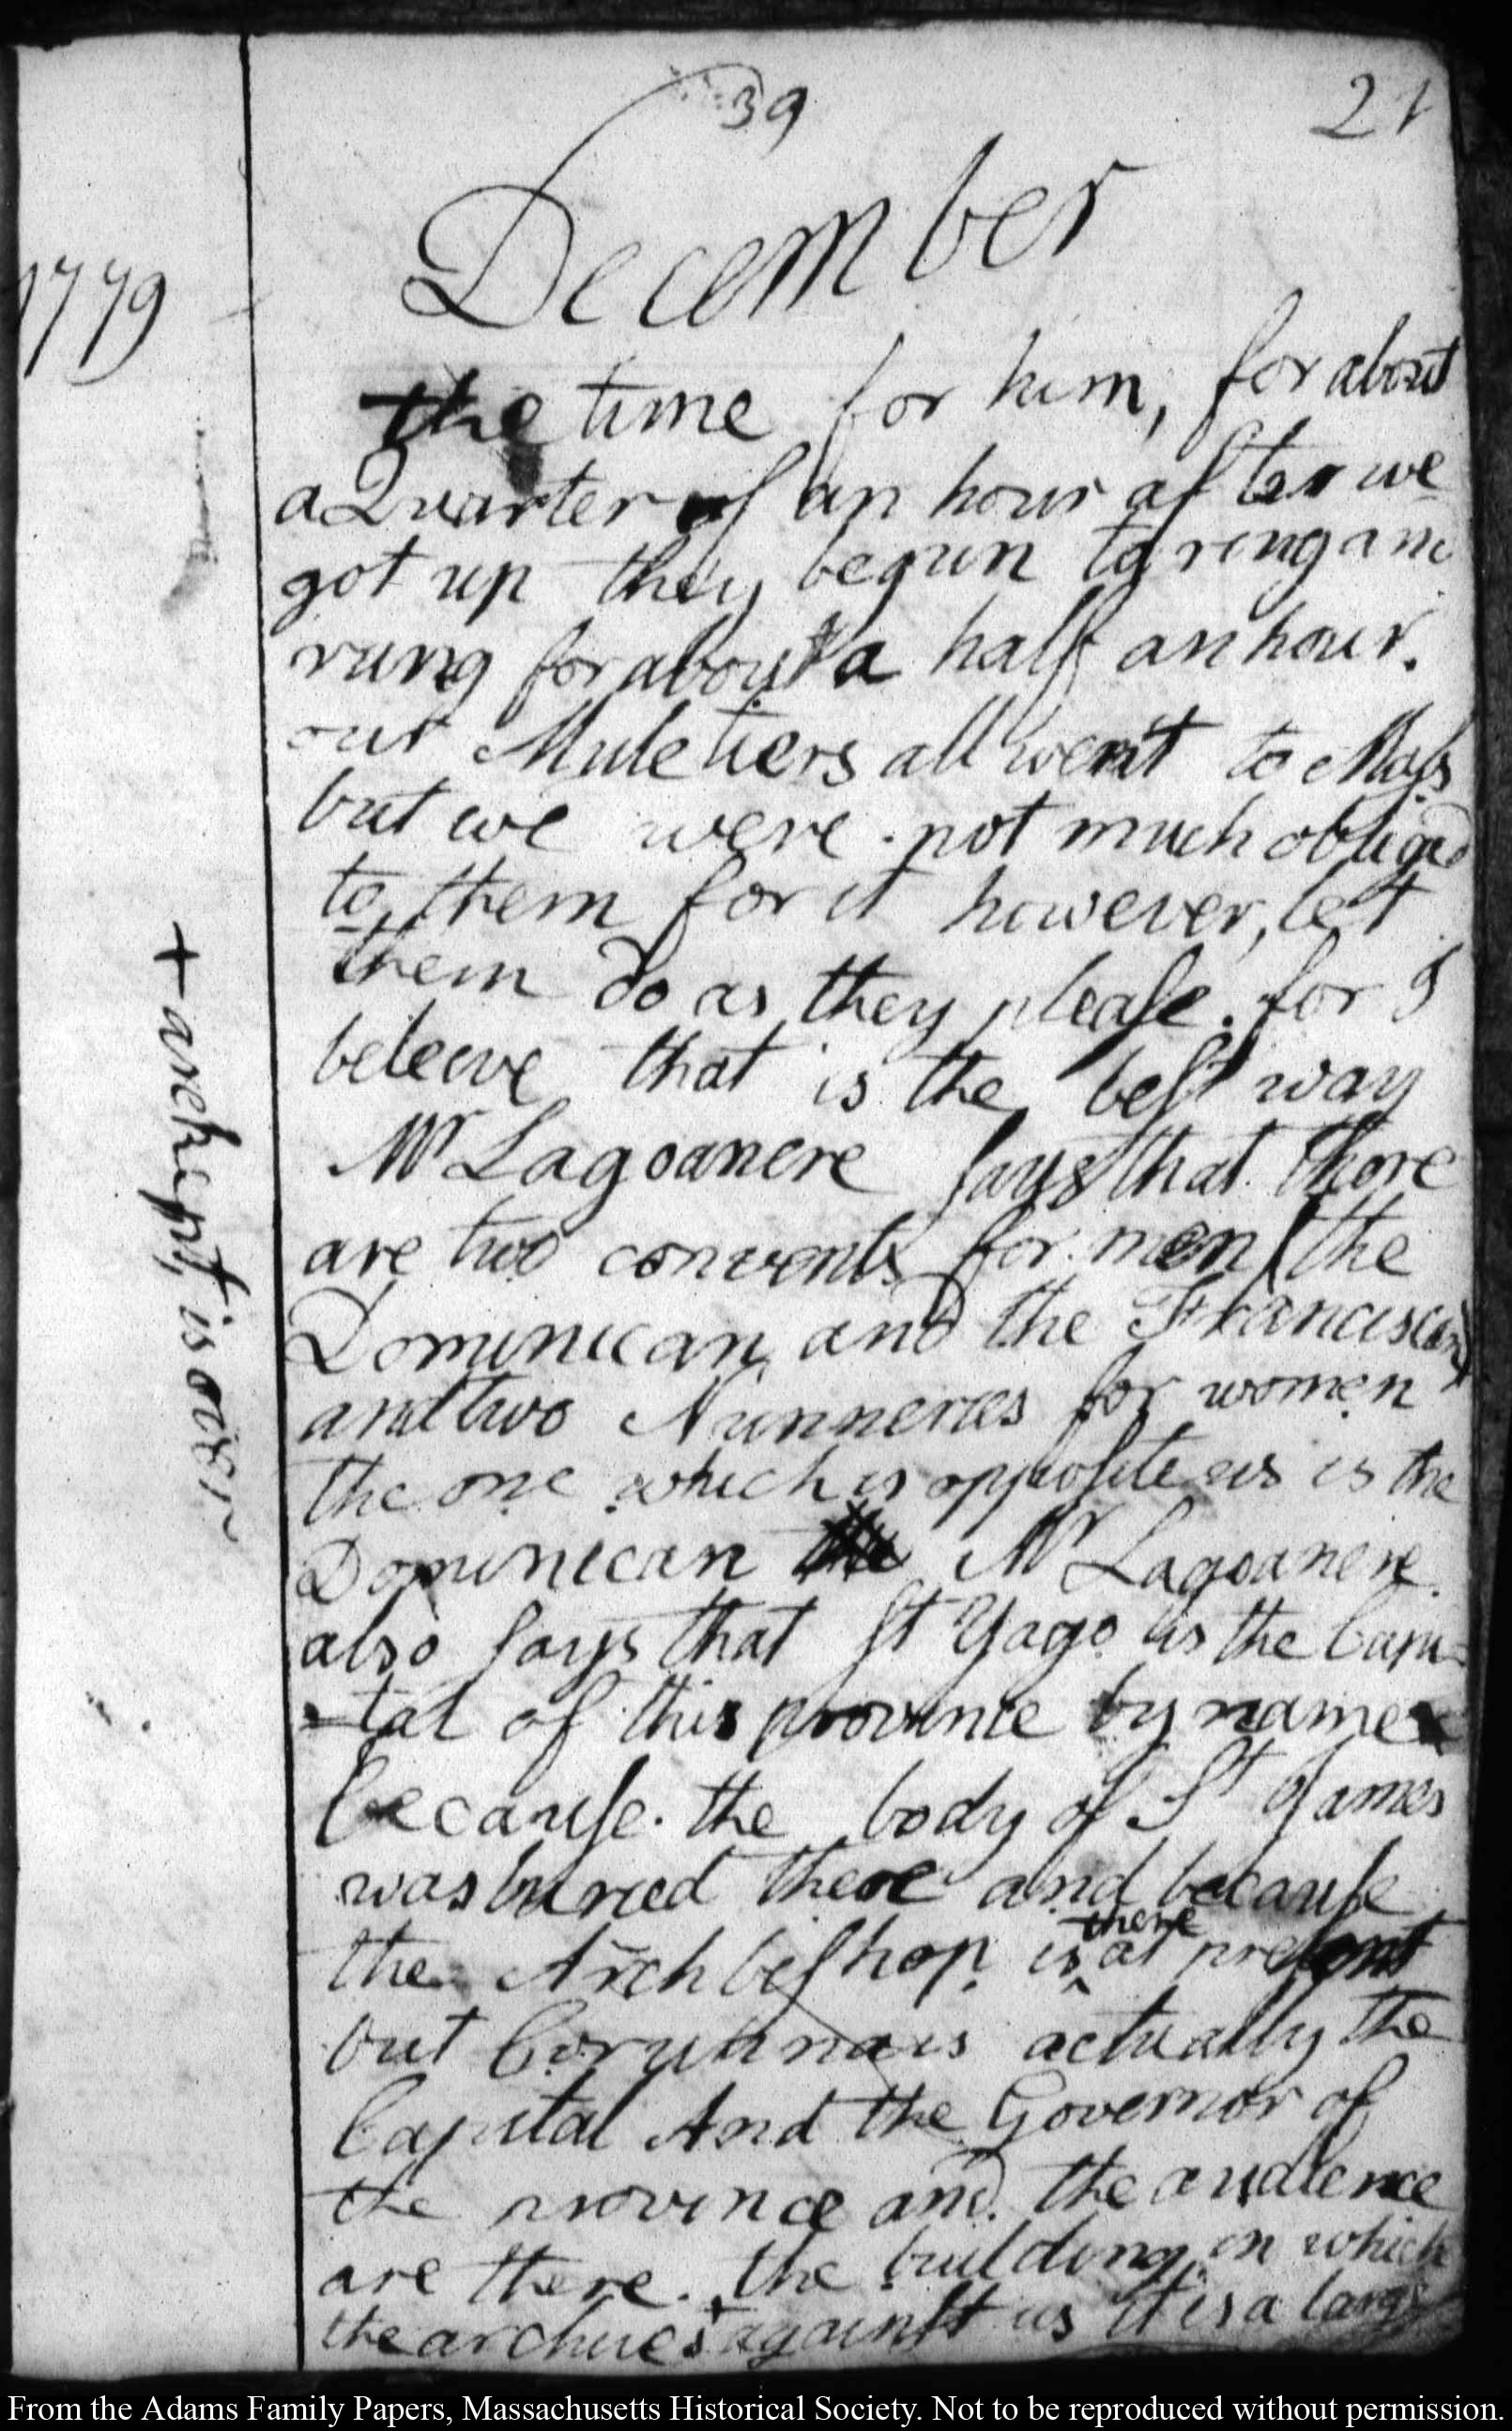 39
21
1779
December
the time for him, for about
a Quarter of an hour after we
got up they begun to ring and
rung for about a half an hour.
our Muletiers all went to Mass
but we were not much obliged
to them for it however, let
them do as they please. for I
beleeve that is the best way
Mr Lagoanere says that there
are two convents for men (the
Dominican and the Franciscan)
and two Nunneries for women
the one which is opposite us is the
Dominican the Mr Lagoanere
also says that St Yago is the Capi-
-tal of this province by name
because the body of St James
was buried there and because
there
the Archbishop is at present
but Corunna is actually the
Capital And the Governor of
the province and the audience
are there. the building in which
the archives + against us it is a large
+ are kept, is over
From the Adams Family Papers, Massachusetts Historical Society. Not to be reproduced without permission.